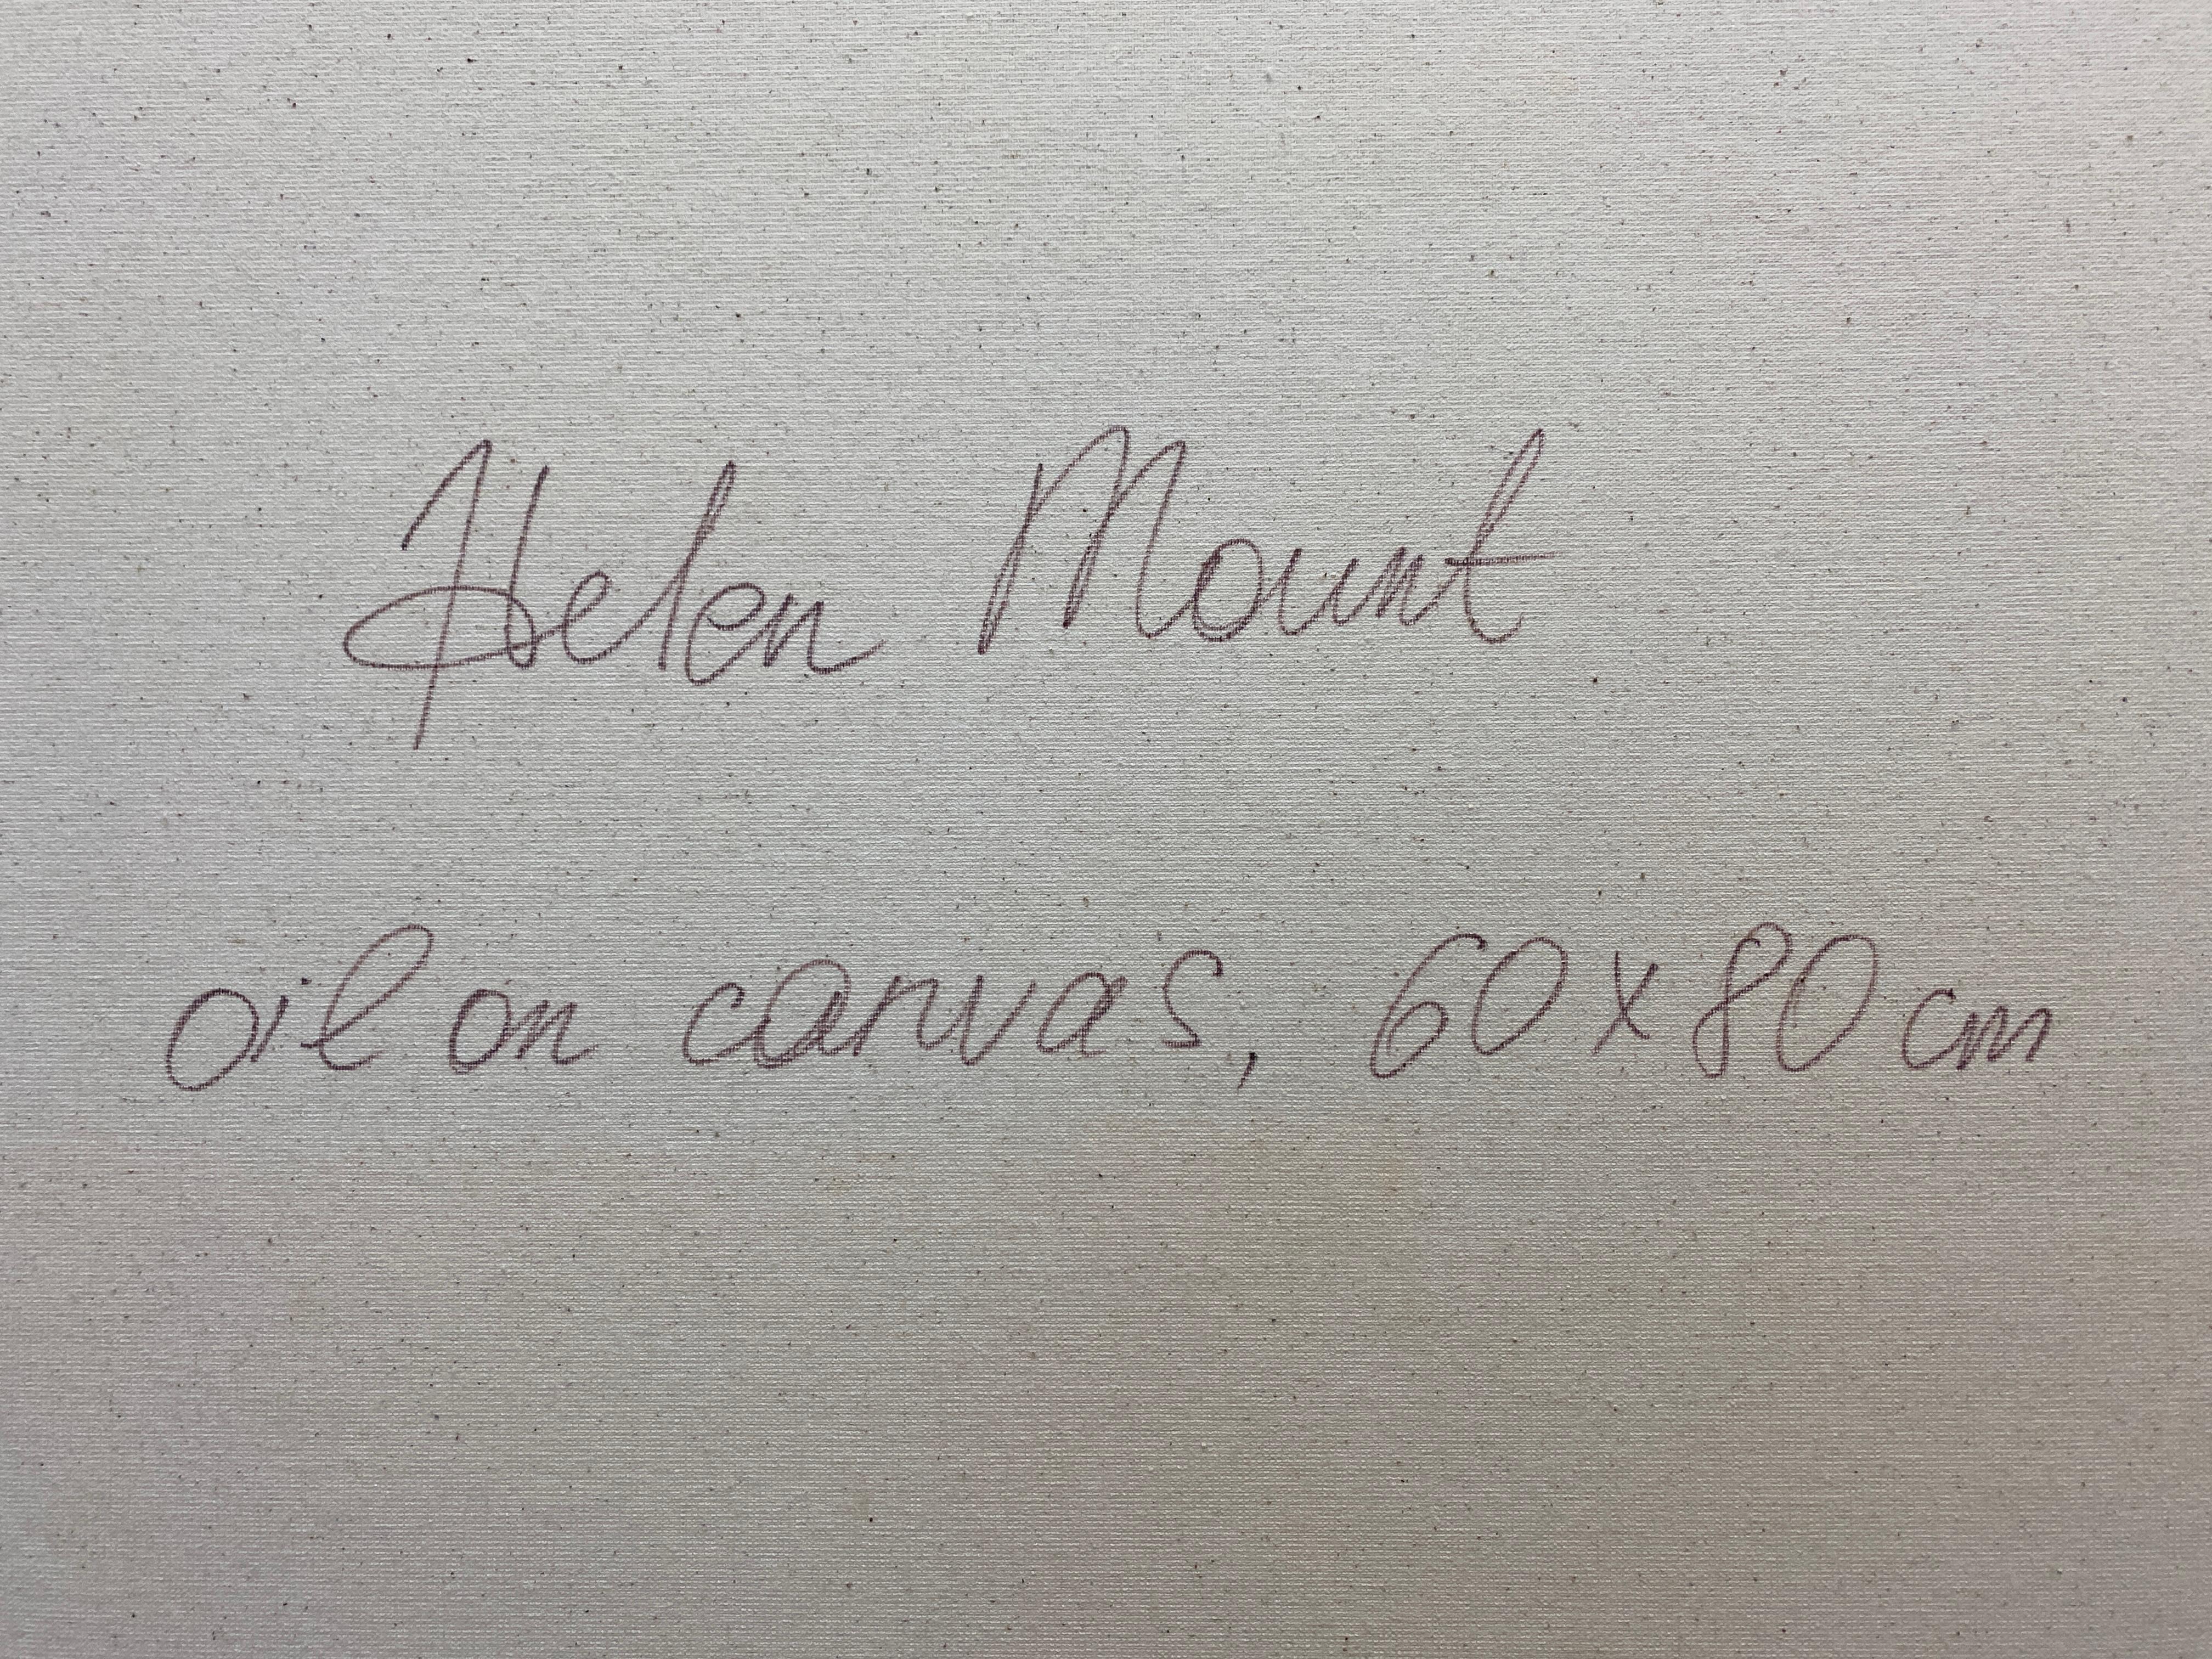 Helen Mount
oil on canvas, 60x80cm